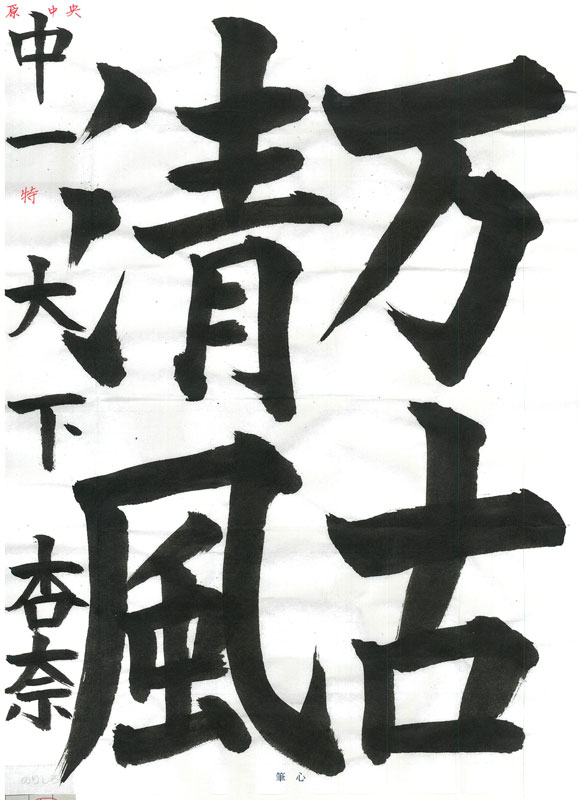 万古
清風
中一 大下 杏奈
原 中央
特
筆心
のりしろ